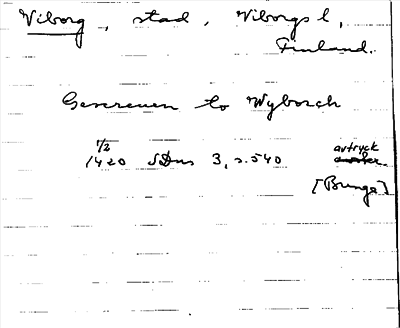 Viborg, stad, Viborgs l,
Finland.
Gescreuen to Wyborch
1/2
1420 SDns 3, s. 540 avtryck
[Bunge]